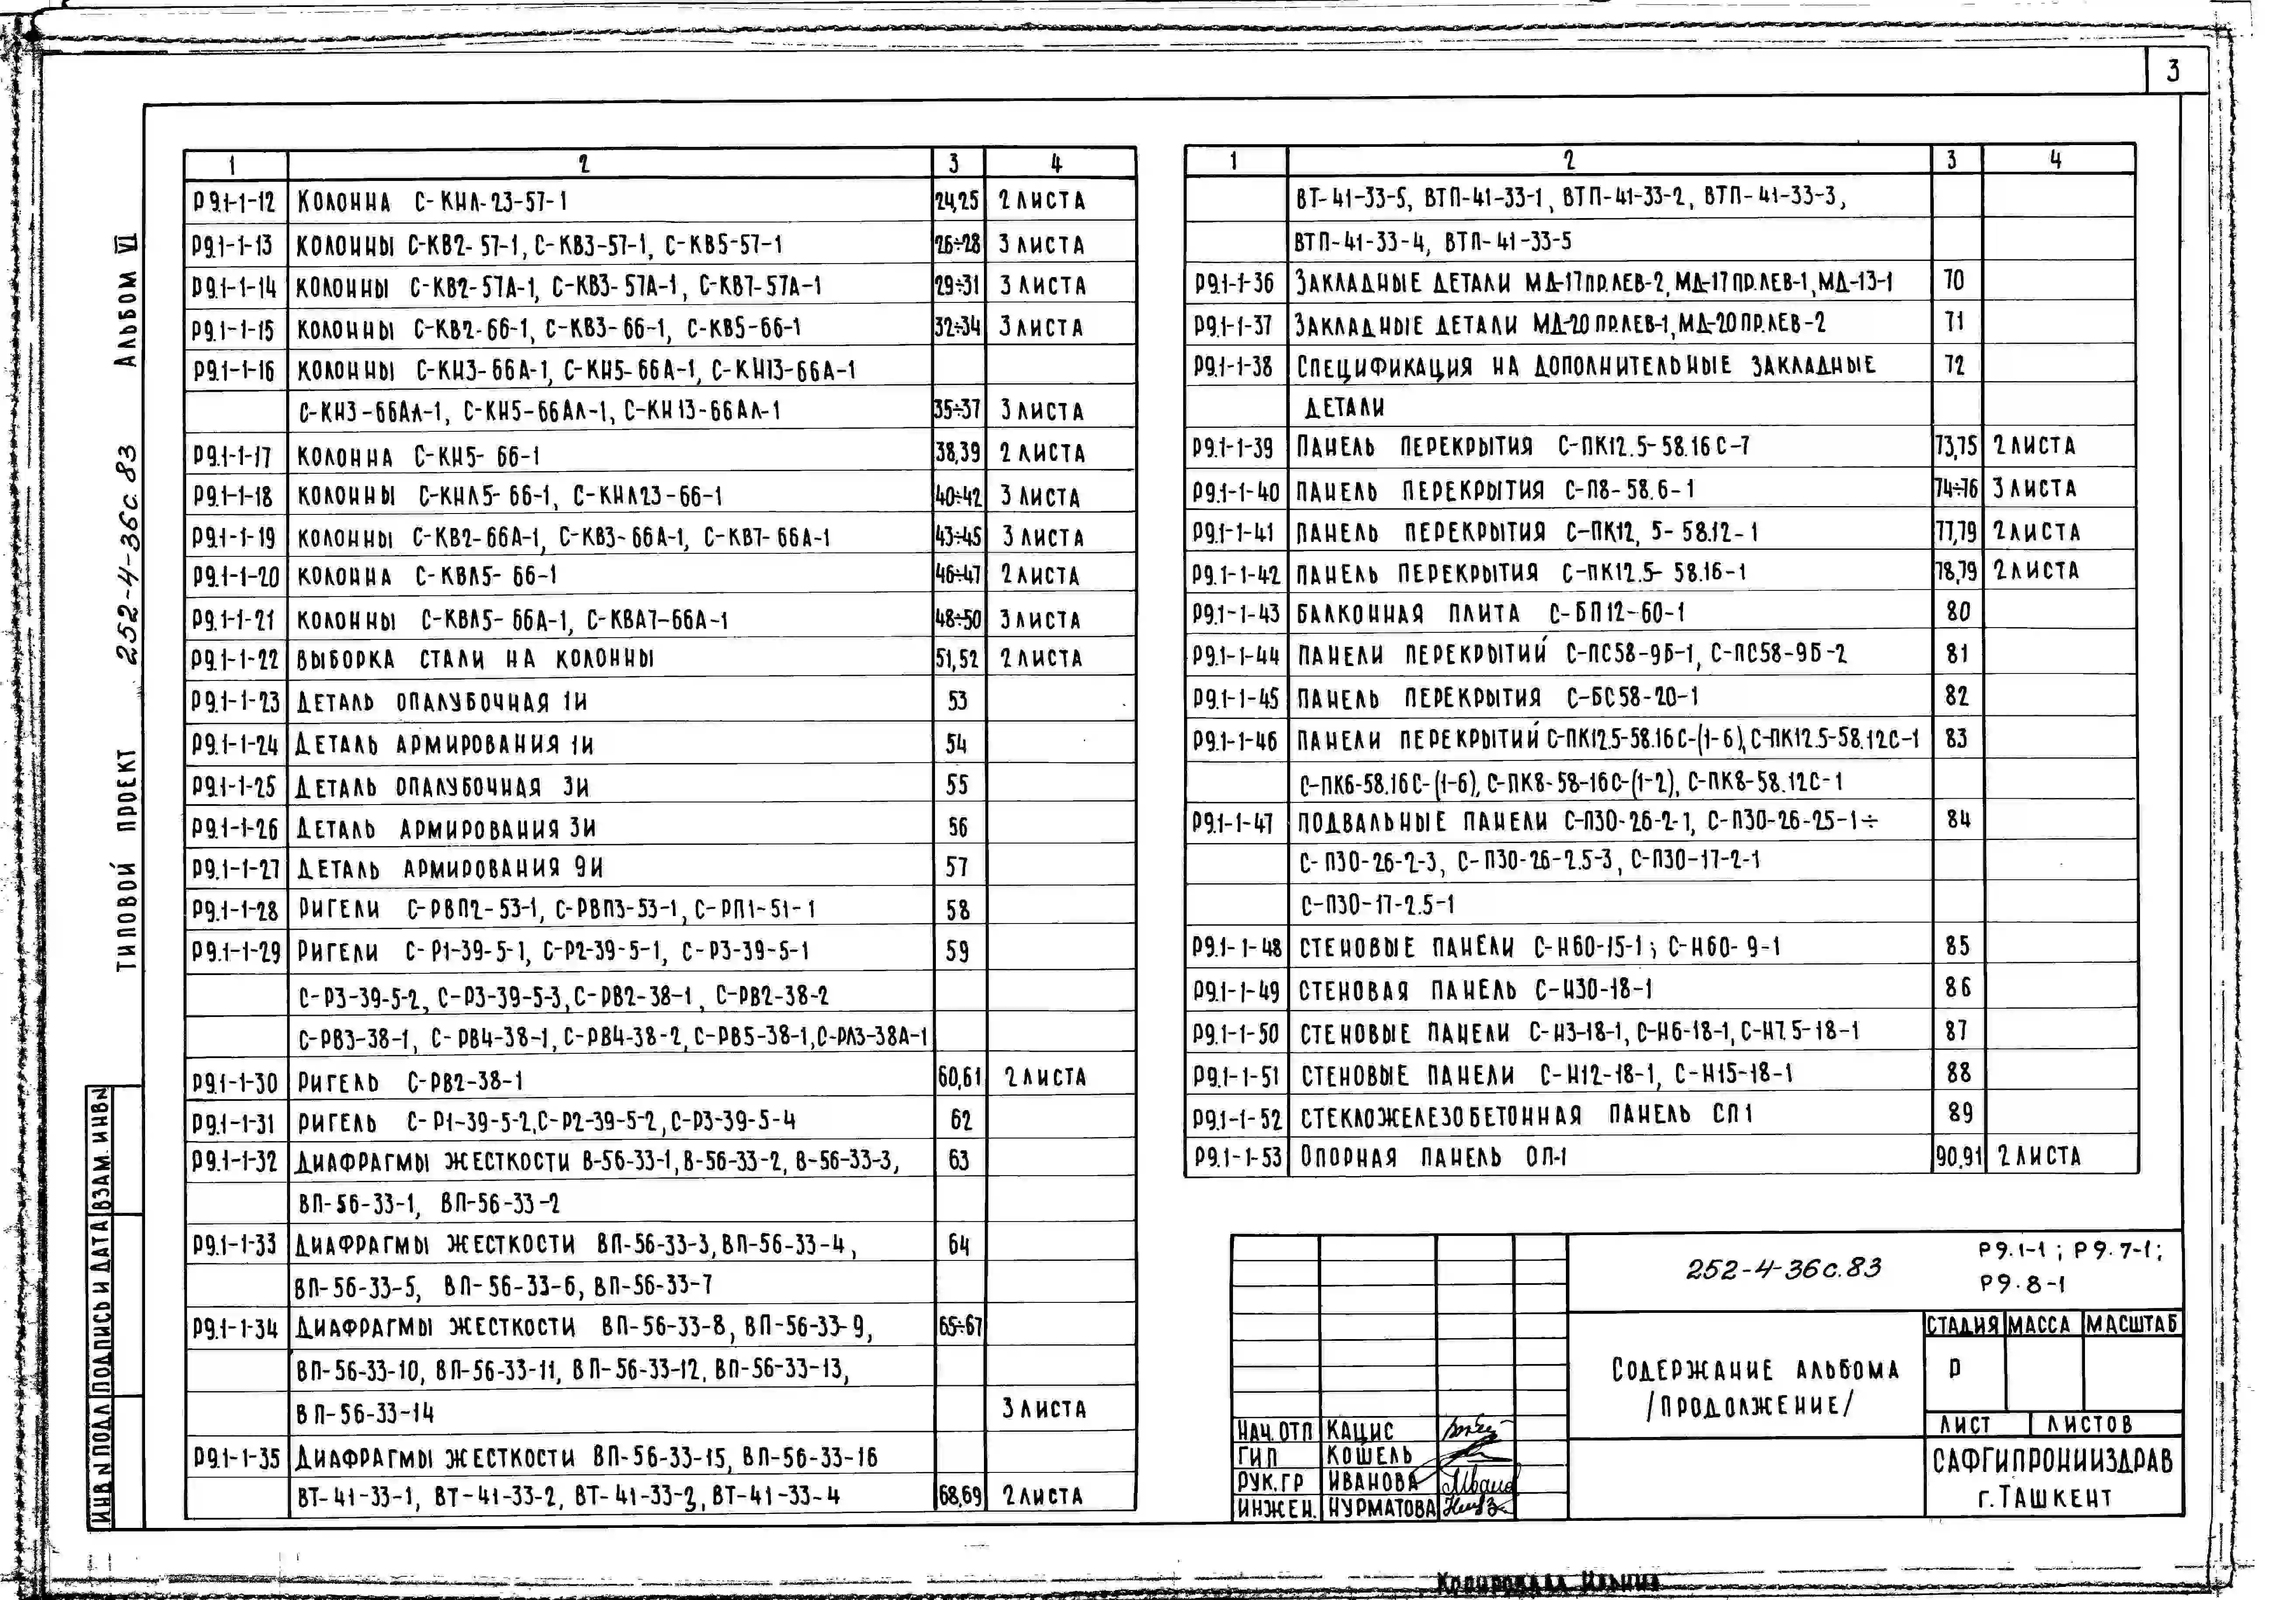 3
1 2 3 4
Р9.1-1-12 КОЛОННА С-КНЛ-23-57-1 24,25 2 ЛИСТА
Р9.1-1-13 КОЛОННЫ С-КВ2-57-1, С-КВ3-57-1, С-КВ5-57-1 26÷28 3 ЛИСТА
Р9.1-1-14 КОЛОННЫ С-КВ2-57А-1, С-КВ3-57А-1, С-КВ7-57А-1 29÷31 3 ЛИСТА
Р9.1-1-15 КОЛОННЫ С-КВ2-66-1, С-КВ3-66-1, С-КВ5-66-1 32÷34 3 ЛИСТА
Р9.1-1-16 КОЛОННЫ С-КН3-66А-1, С-КН5-66А-1, С-КН13-66А-1
С-КН3-66АЛ-1, С-КН5-66АЛ-1, С-КН13-66АЛ-1 35÷37 3 ЛИСТА
Р9.1-1-17 КОЛОННА С-КН5-66-1 38,39 2 ЛИСТА
Р9.1-1-18 КОЛОННЫ С-КНЛ5-66-1, С-КНЛ23-66-1 40÷42 3 ЛИСТА
Р9.1-1-19 КОЛОННЫ С-КВ2-66А-1, С-КВ3-66А-1, С-КВ7-66А-1 43÷45 3 ЛИСТА
Р9.1-1-20 КОЛОННА С-КВЛ5-66-1 46÷47 2 ЛИСТА
Р9.1-1-21 КОЛОННЫ С-КВЛ5-66А-1, С-КВЛ7-66А-1 48÷50 3 ЛИСТА
Р9.1-1-22 ВЫБОРКА СТАЛИ НА КОЛОННЫ 51,52 2 ЛИСТА
Р9.1-1-23 ДЕТАЛЬ ОПАЛУБОЧНАЯ 1И 53
Р9.1-1-24 ДЕТАЛЬ АРМИРОВАНИЯ 1И 54
Р9.1-1-25 ДЕТАЛЬ ОПАЛУБОЧНАЯ 3И 55
Р9.1-1-26 ДЕТАЛЬ АРМИРОВАНИЯ 3И 56
Р9.1-1-27 ДЕТАЛЬ АРМИРОВАНИЯ 9И 57
Р9.1-1-28 РИГЕЛИ С-РВП2-53-1, С-РВП3-53-1, С-РП1-51-1 58
Р9.1-1-29 РИГЕЛИ С-Р1-39-5-1, С-Р2-39-5-1, С-Р3-39-5-1 59
С-Р3-39-5-2, С-Р3-39-5-3, С-РВ2-38-1, С-РВ2-38-2
С-РВ3-38-1, С-РВ4-38-1, С-РВ4-38-2, С-РВ5-38-1, С-РЛ3-38А-1
Р9.1-1-30 РИГЕЛЬ С-РВ2-38-1 60,61 2 ЛИСТА
Р9.1-1-31 РИГЕЛЬ С-Р1-39-5-2, С-Р2-39-5-2, С-Р3-39-5-4 62
Р9.1-1-32 ДИАФРАГМЫ ЖЕСТКОСТИ В-56-33-1, В-56-33-2, В-56-33-3, 63
ВП-56-33-1, ВП-56-33-2
Р9.1-1-33 ДИАФРАГМЫ ЖЕСТКОСТИ ВП-56-33-3, ВП-56-33-4, 64
ВП-56-33-5, ВП-56-33-6, ВП-56-33-7
Р9.1-1-34 ДИАФРАГМЫ ЖЕСТКОСТИ ВП-56-33-8, ВП-56-33-9, 65÷67
ВП-56-33-10, ВП-56-33-11, ВП-56-33-12, ВП-56-33-13,
ВП-56-33-14 3 ЛИСТА
Р9.1-1-35 ДИАФРАГМЫ ЖЕСТКОСТИ ВП-56-33-15, ВП-56-33-16
ВТ-41-33-1, ВТ-41-33-2, ВТ-41-33-3, ВТ-41-33-4 68,69 2 ЛИСТА
1 2 3 4
ВТ-41-33-5, ВТП-41-33-1, ВТП-41-33-2, ВТП-41-33-3,
ВТП-41-33-4, ВТП-41-33-5
Р9.1-1-36 ЗАКЛАДНЫЕ ДЕТАЛИ МД-17ПР.ЛЕВ-2, МД-17ПР.ЛЕВ-1, МД-13-1 70
Р9.1-1-37 ЗАКЛАДНЫЕ ДЕТАЛИ МД-20ПР.ЛЕВ-1, МД-20ПР.ЛЕВ-2 71
Р9.1-1-38 СПЕЦИФИКАЦИЯ НА ДОПОЛНИТЕЛЬНЫЕ ЗАКЛАДНЫЕ 72
ДЕТАЛИ
Р9.1-1-39 ПАНЕЛЬ ПЕРЕКРЫТИЯ С-ПК12.5-58.16С-7 73,75 2 ЛИСТА
Р9.1-1-40 ПАНЕЛЬ ПЕРЕКРЫТИЯ С-П8-58.6-1 74÷76 3 ЛИСТА
Р9.1-1-41 ПАНЕЛЬ ПЕРЕКРЫТИЯ С-ПК12,5-58.12-1 77,79 2 ЛИСТА
Р9.1-1-42 ПАНЕЛЬ ПЕРЕКРЫТИЯ С-ПК12.5-58.16-1 78,79 2 ЛИСТА
Р9.1-1-43 БАЛКОННАЯ ПЛИТА С-БП12-60-1 80
Р9.1-1-44 ПАНЕЛИ ПЕРЕКРЫТИЙ С-ПС58-9Б-1, С-ПС58-9Б-2 81
Р9.1-1-45 ПАНЕЛЬ ПЕРЕКРЫТИЯ С-БС58-20-1 82
Р9.1-1-46 ПАНЕЛИ ПЕРЕКРЫТИЙ С-ПК12.5-58.16С-(1-6), С-ПК12.5-58.12С-1 83
С-ПК6-58.16С-(1-6), С-ПК8-58-16С-(1-2), С-ПК8-58.12С-1
Р9.1-1-47 ПОДВАЛЬНЫЕ ПАНЕЛИ С-П30-26-2-1, С-П30-26-25-1÷ 84
С-П30-26-2-3, С-П30-26-2.5-3, С-П30-17-2-1
С-П30-17-2.5-1
Р9.1-1-48 СТЕНОВЫЕ ПАНЕЛИ С-Н60-15-1; С-Н60-9-1 85
Р9.1-1-49 СТЕНОВАЯ ПАНЕЛЬ С-Н30-18-1 86
Р9.1-1-50 СТЕНОВЫЕ ПАНЕЛИ С-Н3-18-1, С-Н6-18-1, С-Н7.5-18-1 87
Р9.1-1-51 СТЕНОВЫЕ ПАНЕЛИ С-Н12-18-1, С-Н15-18-1 88
Р9.1-1-52 СТЕКЛОЖЕЛЕЗОБЕТОННАЯ ПАНЕЛЬ СП1 89
Р9.1-1-53 ОПОРНАЯ ПАНЕЛЬ ОП-1 90,91 2 ЛИСТА
252-4-36с.83
Р9.1-1; Р9.7-1;
Р9.8-1
СОДЕРЖАНИЕ АЛЬБОМА
/ПРОДОЛЖЕНИЕ/
СТАДИЯ МАССА МАСШТАБ
Р
ЛИСТ ЛИСТОВ
САФГИПРОНИИЗДРАВ
г. ТАШКЕНТ
НАЧ. ОТП КАЦИС
ГИП КОШЕЛЬ
РУК.ГР ИВАНОВА
ИНЖЕН. НУРМАТОВА
ТИПОВОЙ ПРОЕКТ 252-4-36с.83 АЛЬБОМ VI
ИНВ N ПОДЛ ПОДПИСЬ И ДАТА ВЗАМ. ИНВN
Копировала